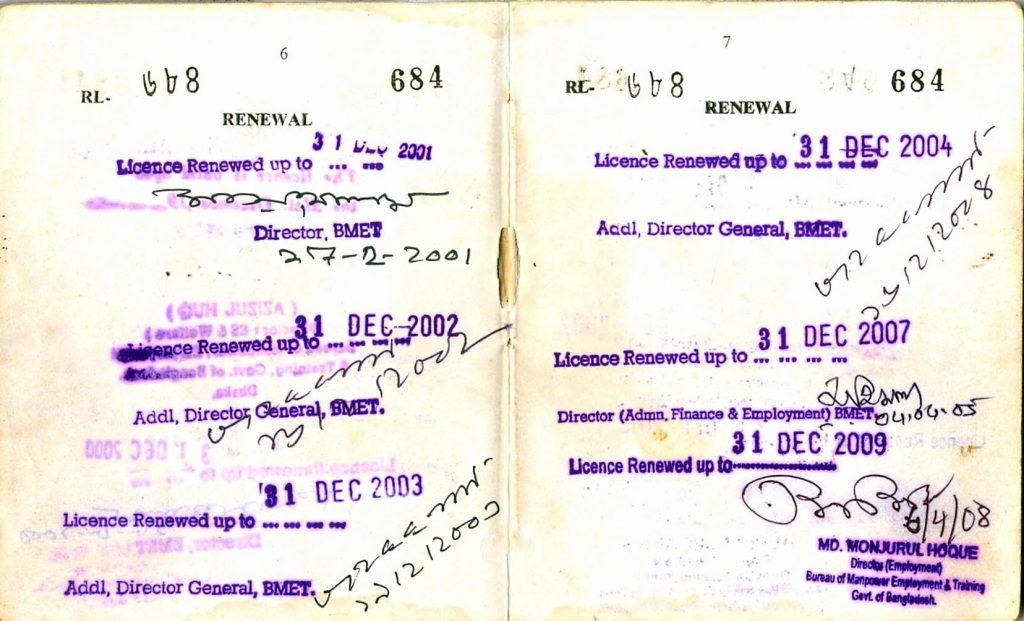 6
RL- ৬৮৪ 684
RENEWAL
31 DEC 2001
Licence Renewed up to ... ...
Director, BMET
27-2-2001
31 DEC 2002
Licence Renewed up to ... ... ...
Addl, Director General, BMET.
31 DEC 2003
Licence Renewed up to ... ... ... ...
Addl, Director General, BMET.
7
RL- ৬৮৪ 684
RENEWAL
31 DEC 2004
Licence Renewed up to ... ... ... ...
Addl, Director General, BMET.
31 DEC 2007
Licence Renewed up to ... ... ... ...
Director (Admn, Finance & Employment) BMET.
04.04.05
31 DEC 2009
Licence Renewed up to
/4/08
MD. MONJURUL HOQUE
Director (Employment)
Bureau of Manpower Employment & Training
Govt. of Bangladesh.